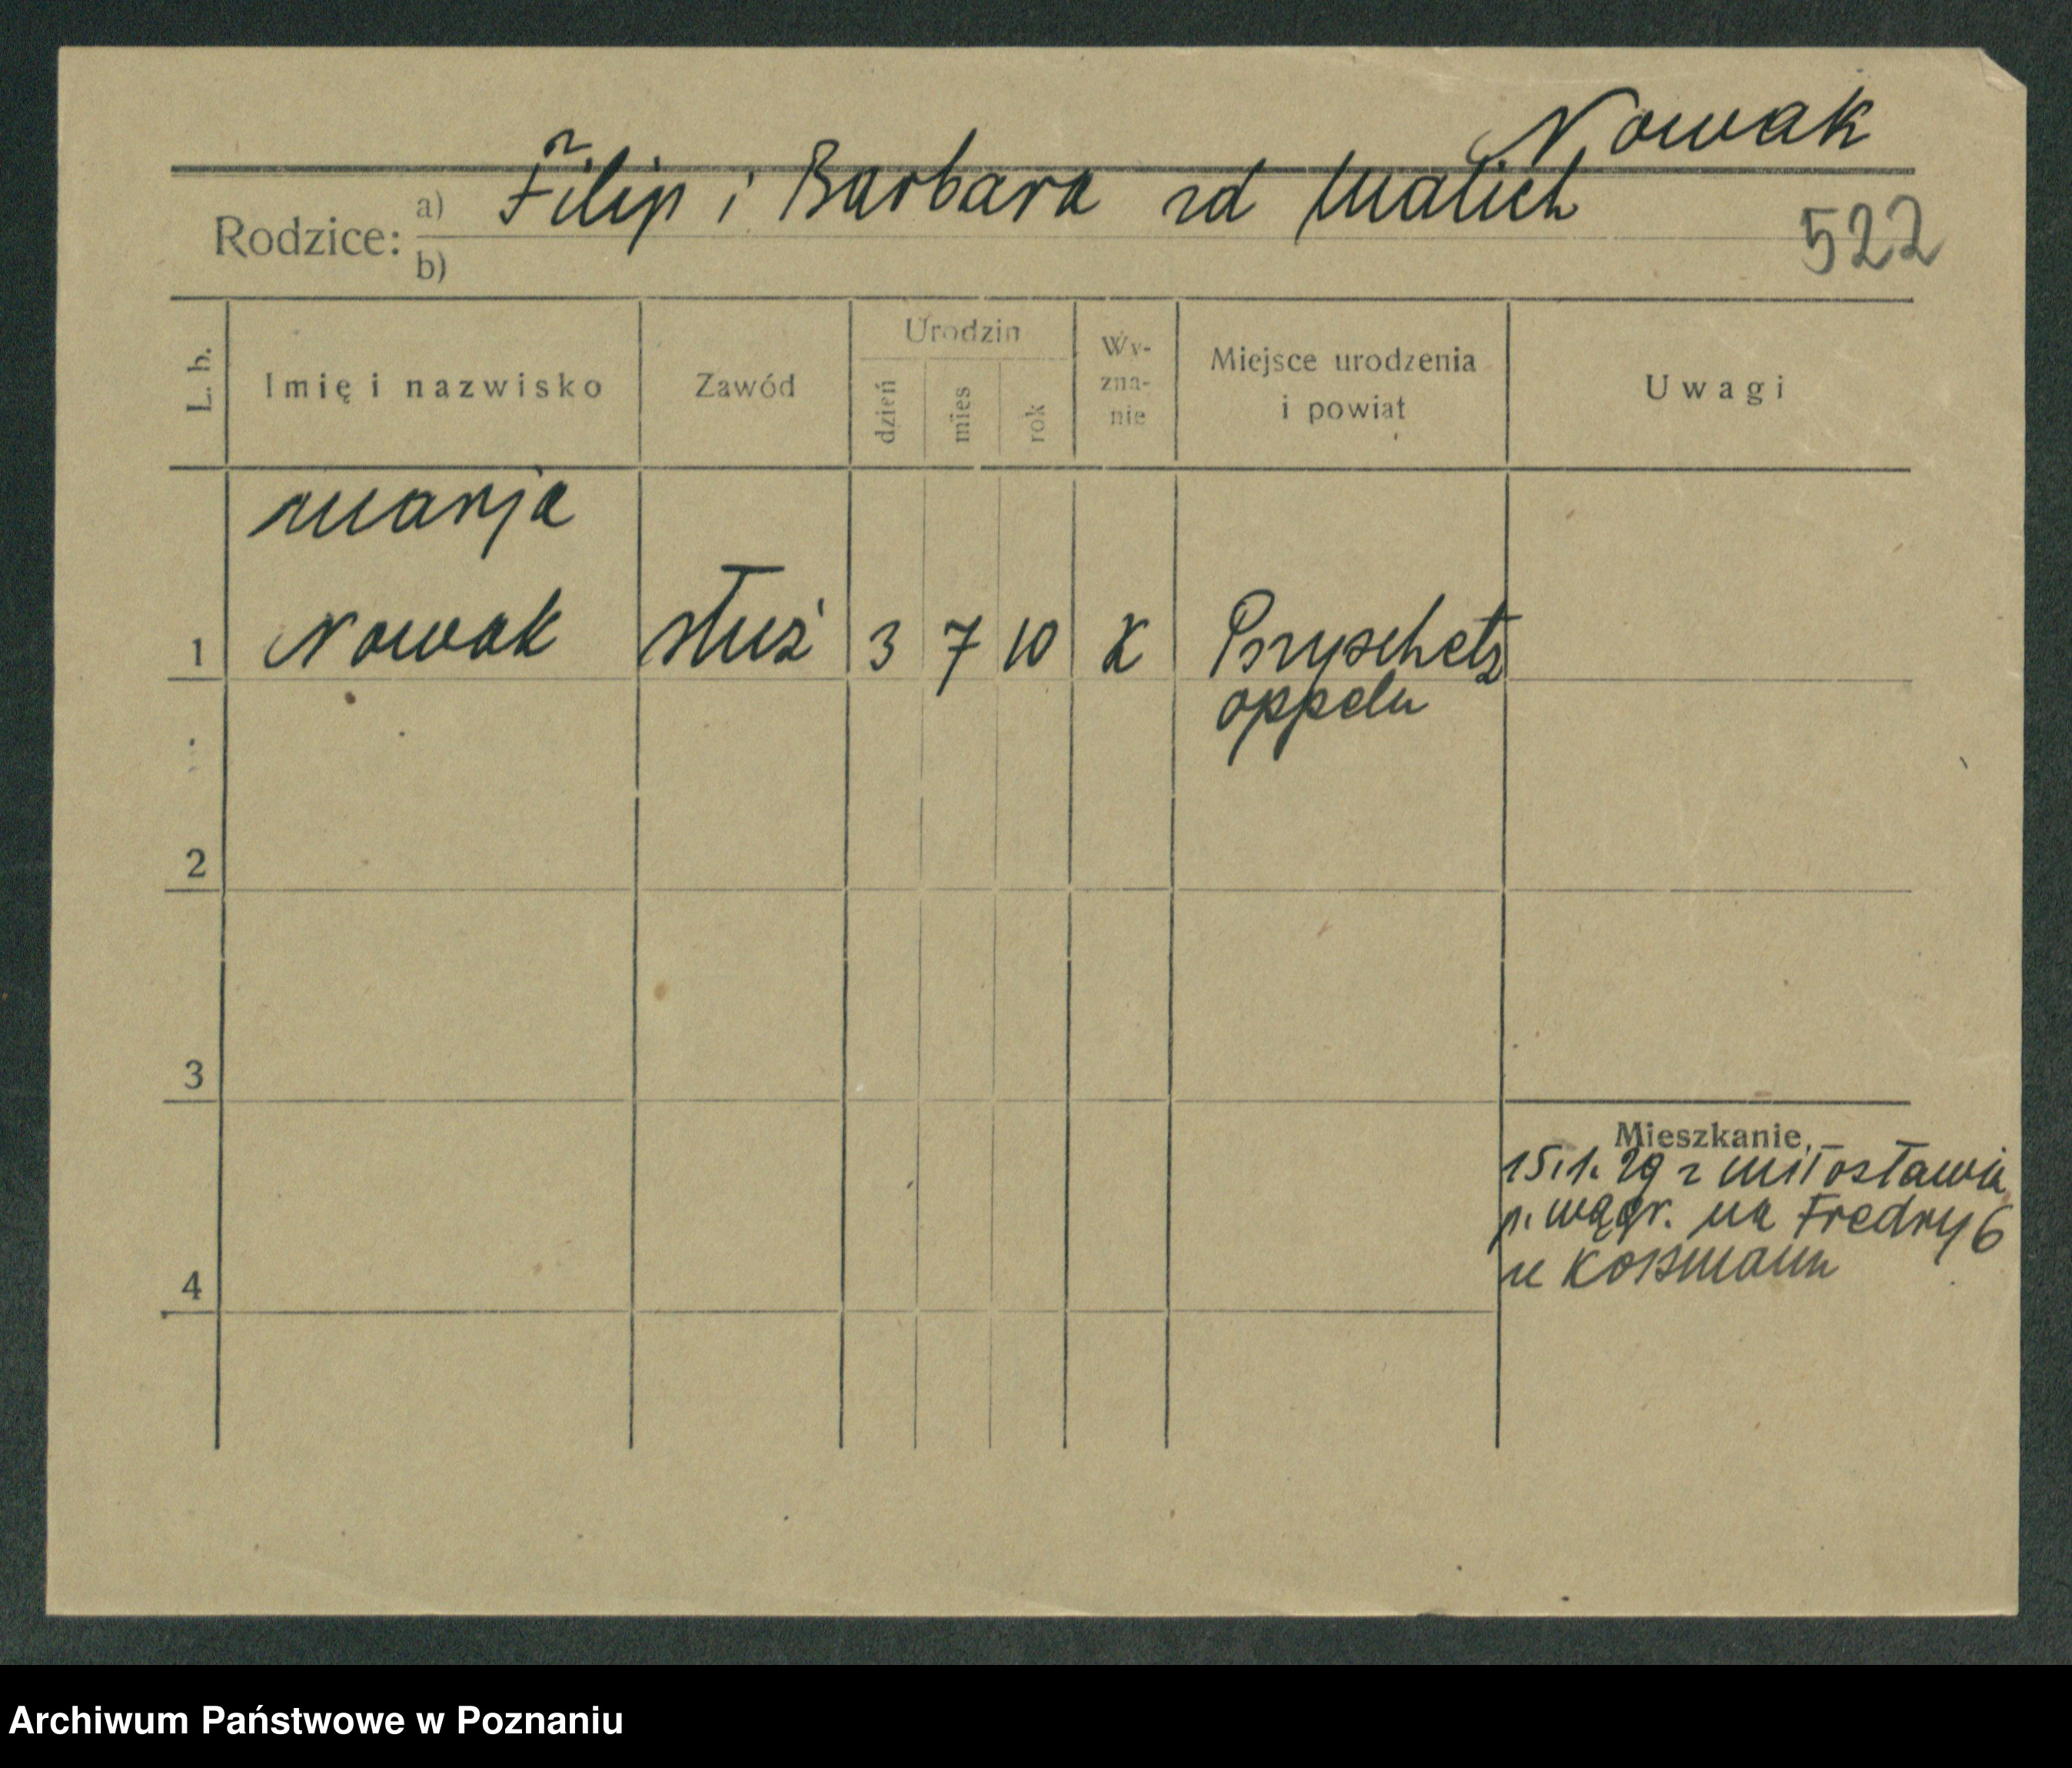 Nowak
Rodzice: a) Filip i Barbara zd Malich
b)
522
L. b. Imię i nazwisko Zawód Urodzin dzień mies rok Wy-zna-nie Miejsce urodzenia i powiat Uwagi
Marja
1 Nowak służ 3 7 10 K Pryschetz
oppeln
2
3
Mieszkanie
15.1.29 z Miłosławia
p. wągr. na Fredry 6
4 u Kossmann
Archiwum Państwowe w Poznaniu